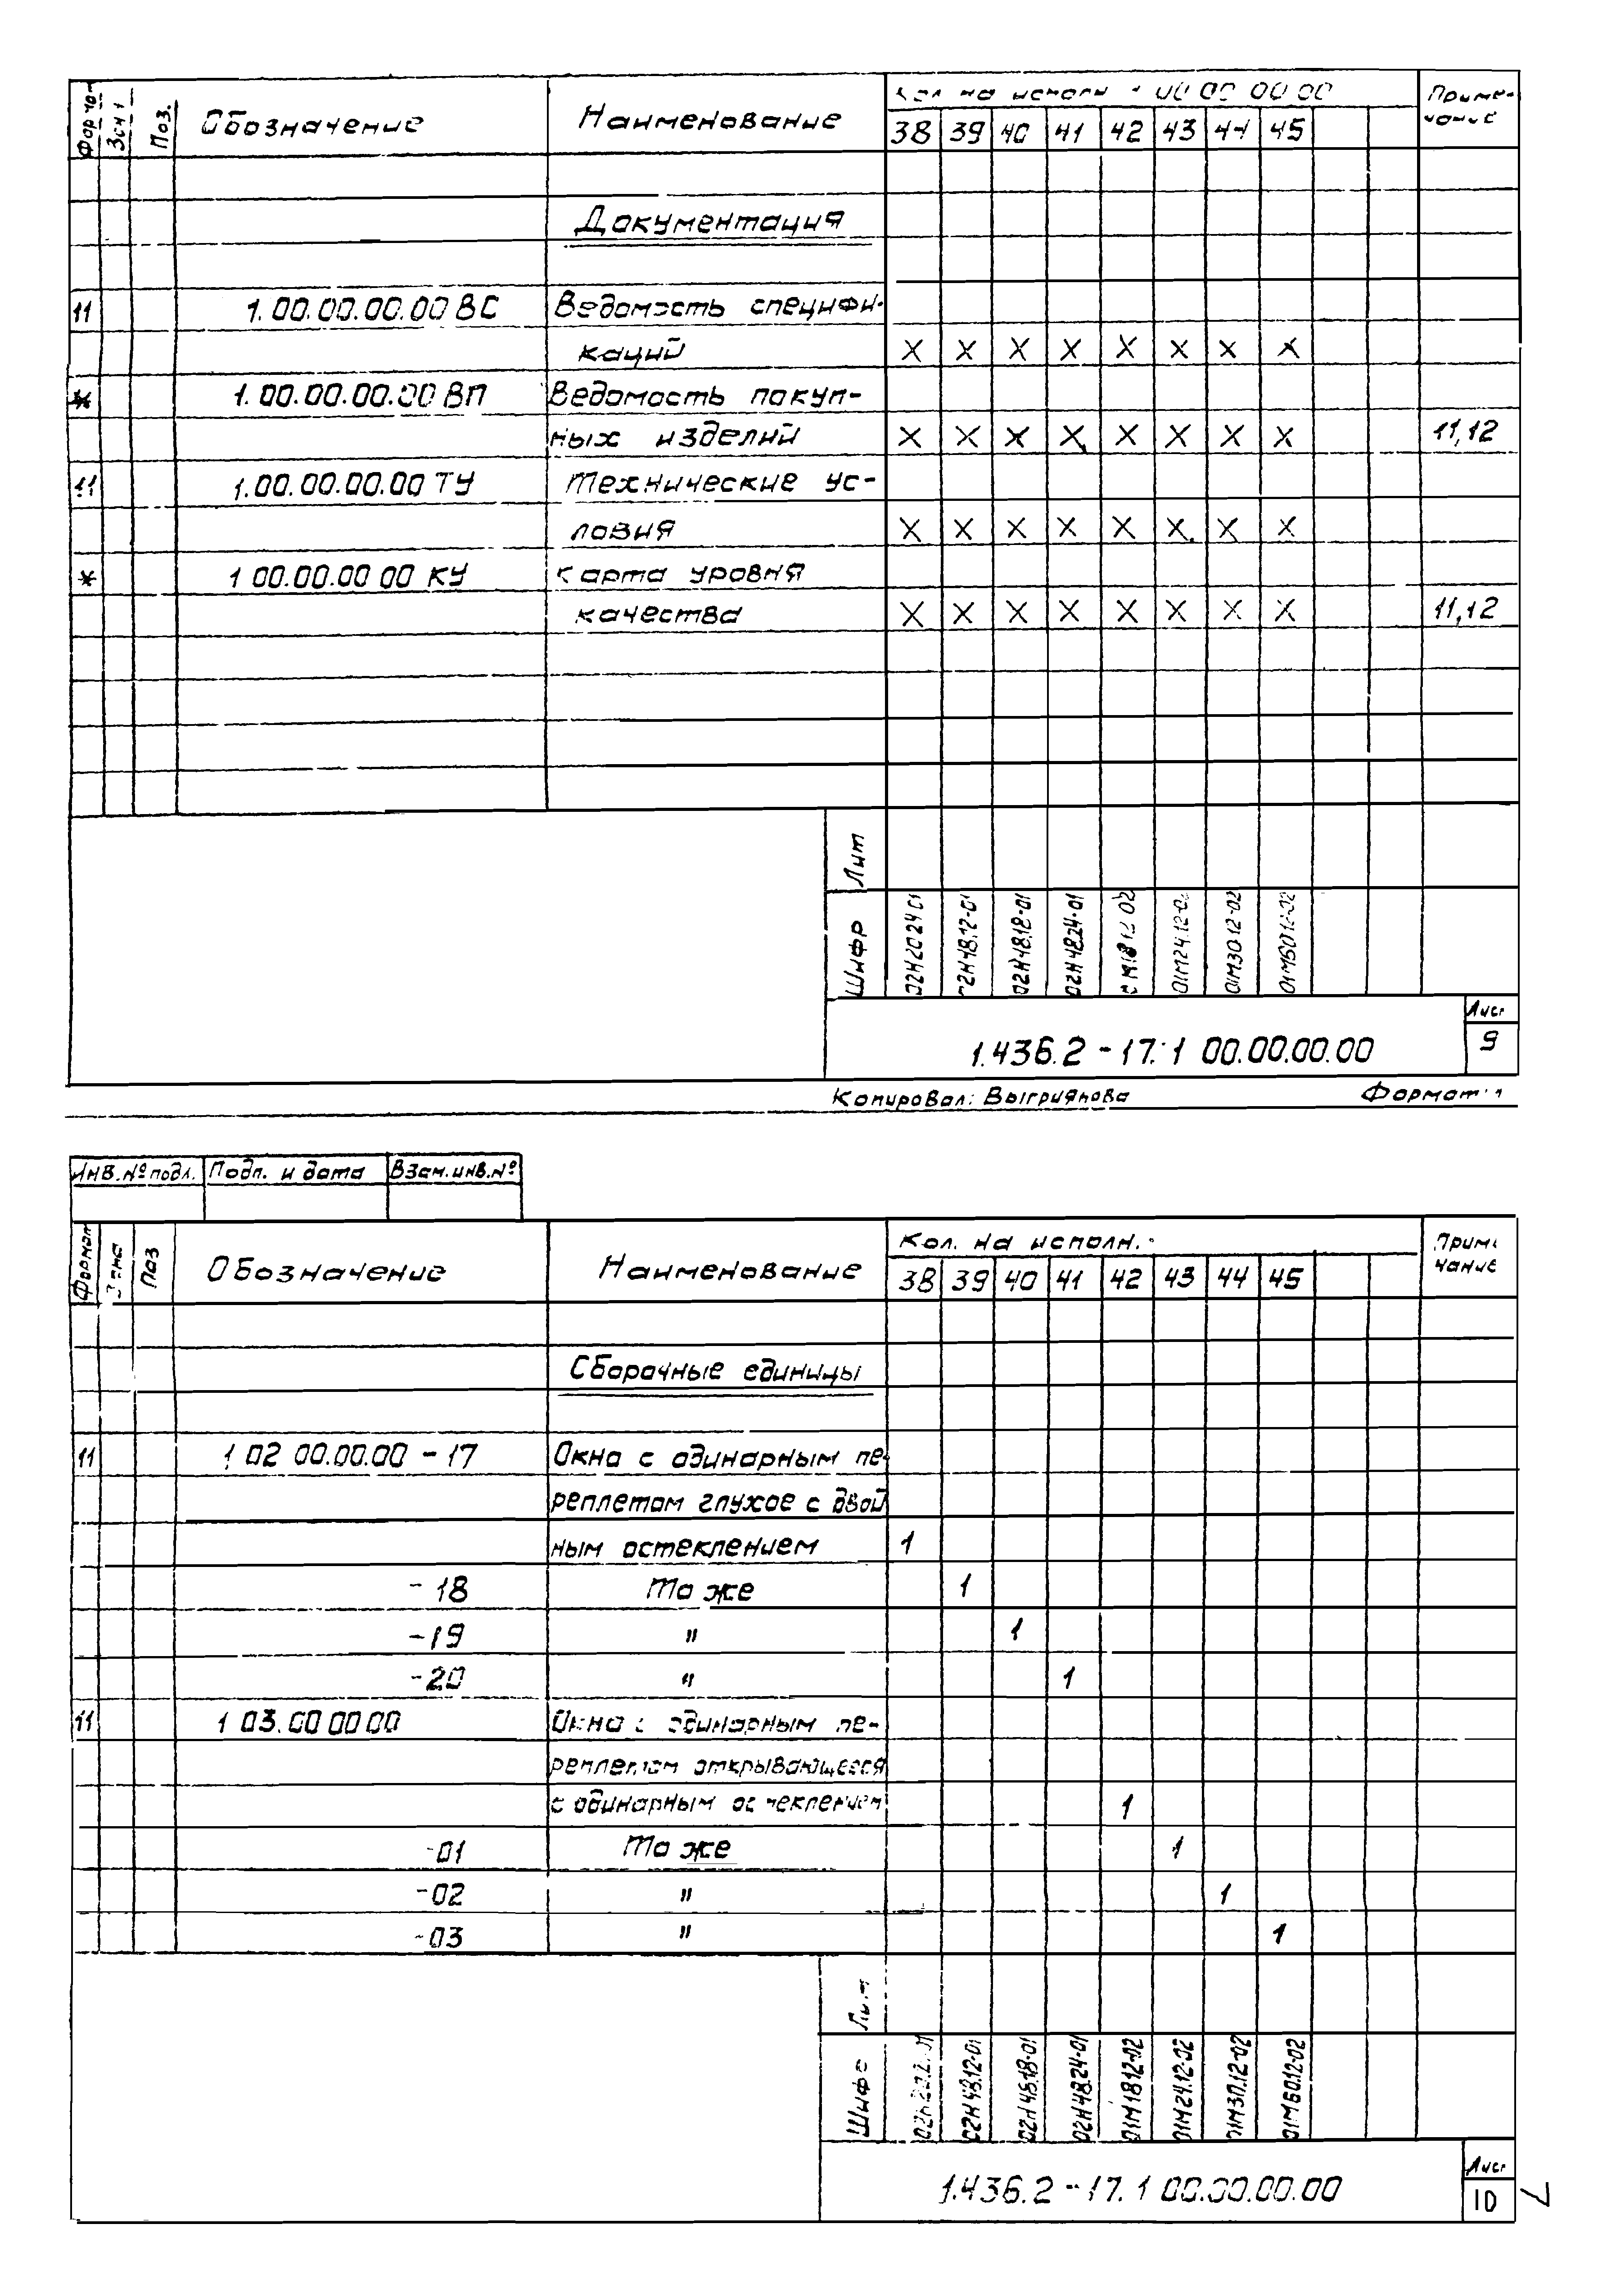 Формат Зона Поз. Обозначение Наименование Кол на исполн 00 00 00 00 Приме-
чание
38 39 40 41 42 43 44 45
Документация
11 1.00.00.00.00 ВС Ведомость специфи-
каций X X X X X X X X
* 1.00.00.00.00 ВП Ведомость покуп-
ных изделий X X X X X X X X 11,12
11 1.00.00.00.00 ТУ Технические ус-
ловия X X X X X X X X
* 1 00.00.00 00 КУ Карта уровня
качества X X X X X X X X 11,12
Лит
Шифр 02Н20 24 01 02Н48.12-01 02Н48.18-01 02Н48.24-01 01М24.12-02 01М30.12-02 01М60 12-02
1.436.2 - 17. 1 00.00.00.00 Лист
9
Копировал: Выгриянова Формат
Инв.№ подл. Подп. и дата Взам.инв.№
Формат Зона Поз Обозначение Наименование Кол. на исполн. - Приме
чание
38 39 40 41 42 43 44 45
Сборочные единицы
11 1 02 00.00.00 - 17 Окна с одинарным пе-
реплетом глухое с двой
ным остеклением 1
- 18 То же 1
-19 " 1
-20 " 1
11 1 03.00 00 00 Окна с одинарным пе-
реплетом открывающееся
с одинарным остеклением 1
-01 То же 1
-02 " 1
-03 " 1
Лит
Шифр 02Н48.12-01 02Н48.18-01 02Н48.24-01 01М18 12-02 01М24.12-02 01М30.12-02 01М60.12-02
1.436.2 - 17. 1 00.00.00.00 Лист
10
7